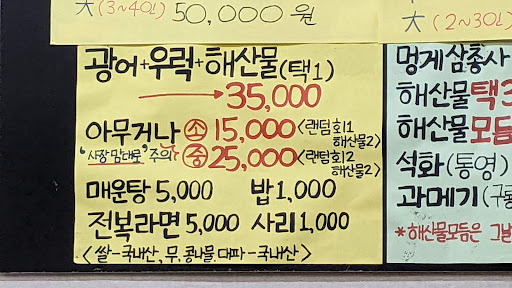 大 (3~4인) 50,000원
大 (2~3인)
광어+우럭+해산물(택1)
→ 35,000
아무거나 소 15,000 <랜덤회1 해산물2>
"사장 맘대로" 주의 중 25,000 <랜덤회2 해산물2>
매운탕 5,000 밥 1,000
전복라면 5,000 사리 1,000
<쌀-국내산, 무. 콩나물. 대파-국내산>
멍게삼총사
해산물택3
해산물모듬
석화(통영)
과메기(구룡
*해산물모듬은 그날